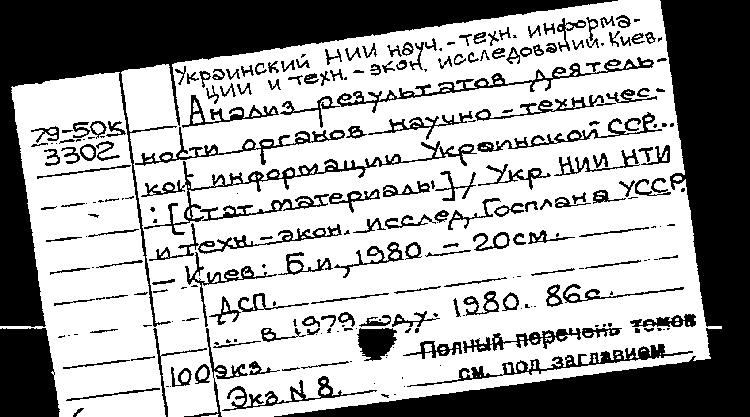 Украинский НИИ науч.-техн. информа-
ции и техн.-экон. исследований. Киев.
Анализ результатов деятель-
79-50к
3302
ности органов научно-техничес-
кой информации Украинской ССР...
: [Стат. материалы] / Укр. НИИ НТИ
и техн.-экон. исслед. Госплана УССР.
— Киев: Б.и., 1980. - 20см.
ДСП.
... в 1979 году. 1980. 86с.
100экз.
Экз N 8.
Полный перечень томов
см. под заглавием